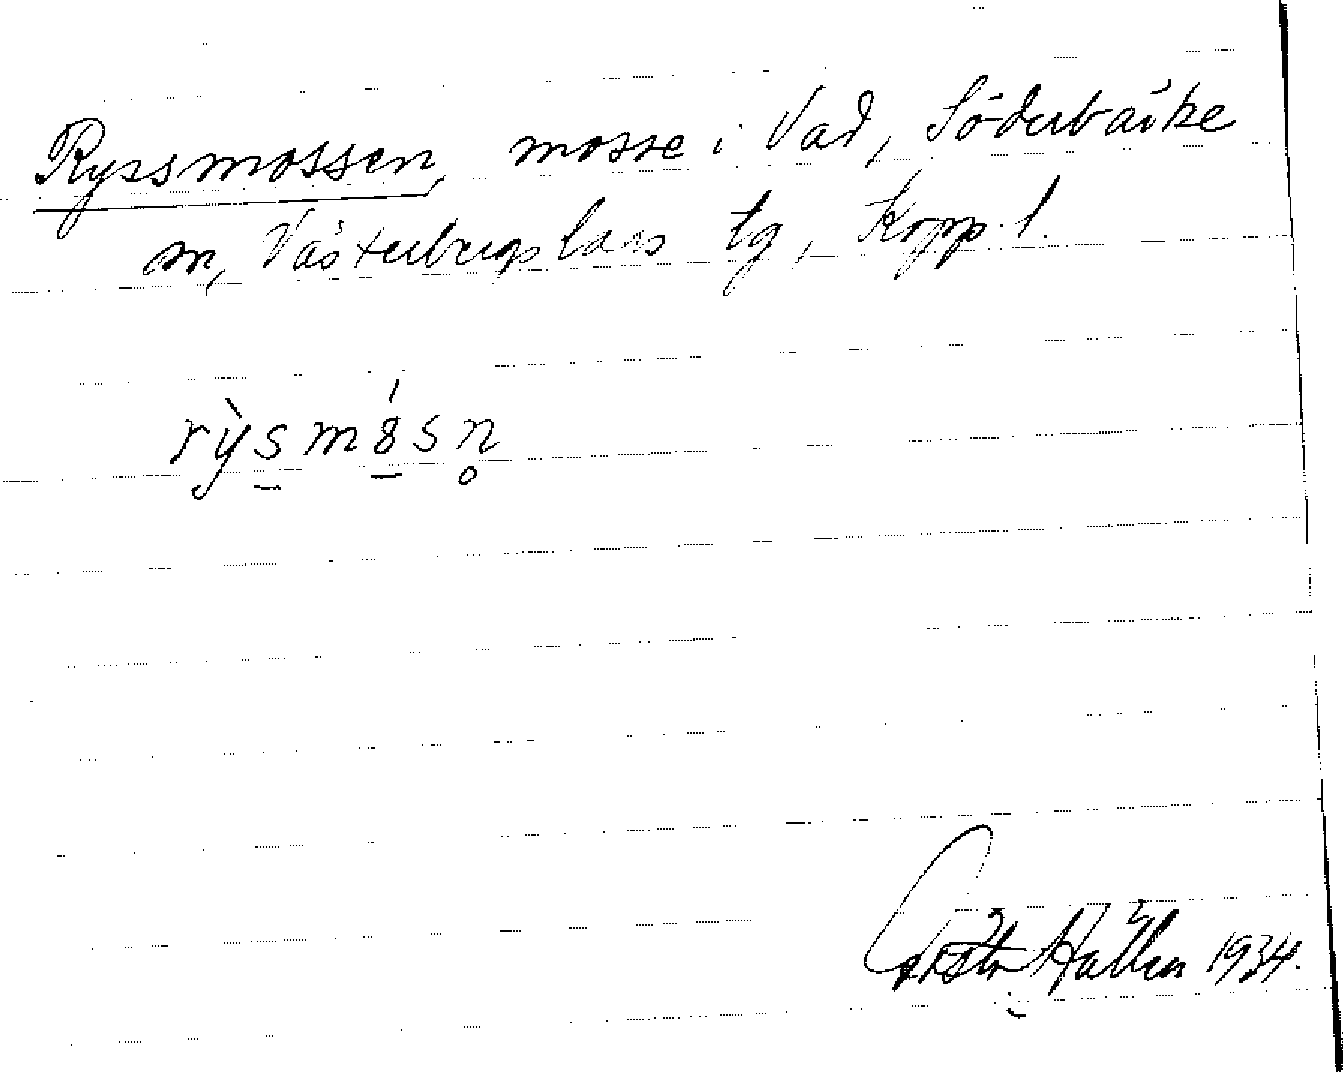 Ryssmossen, mosse i Vad, Söderbärke
sn, Västerbergslags tg, Kopp. l.
rỳsmósn̥
Gösta Hallén 1934.